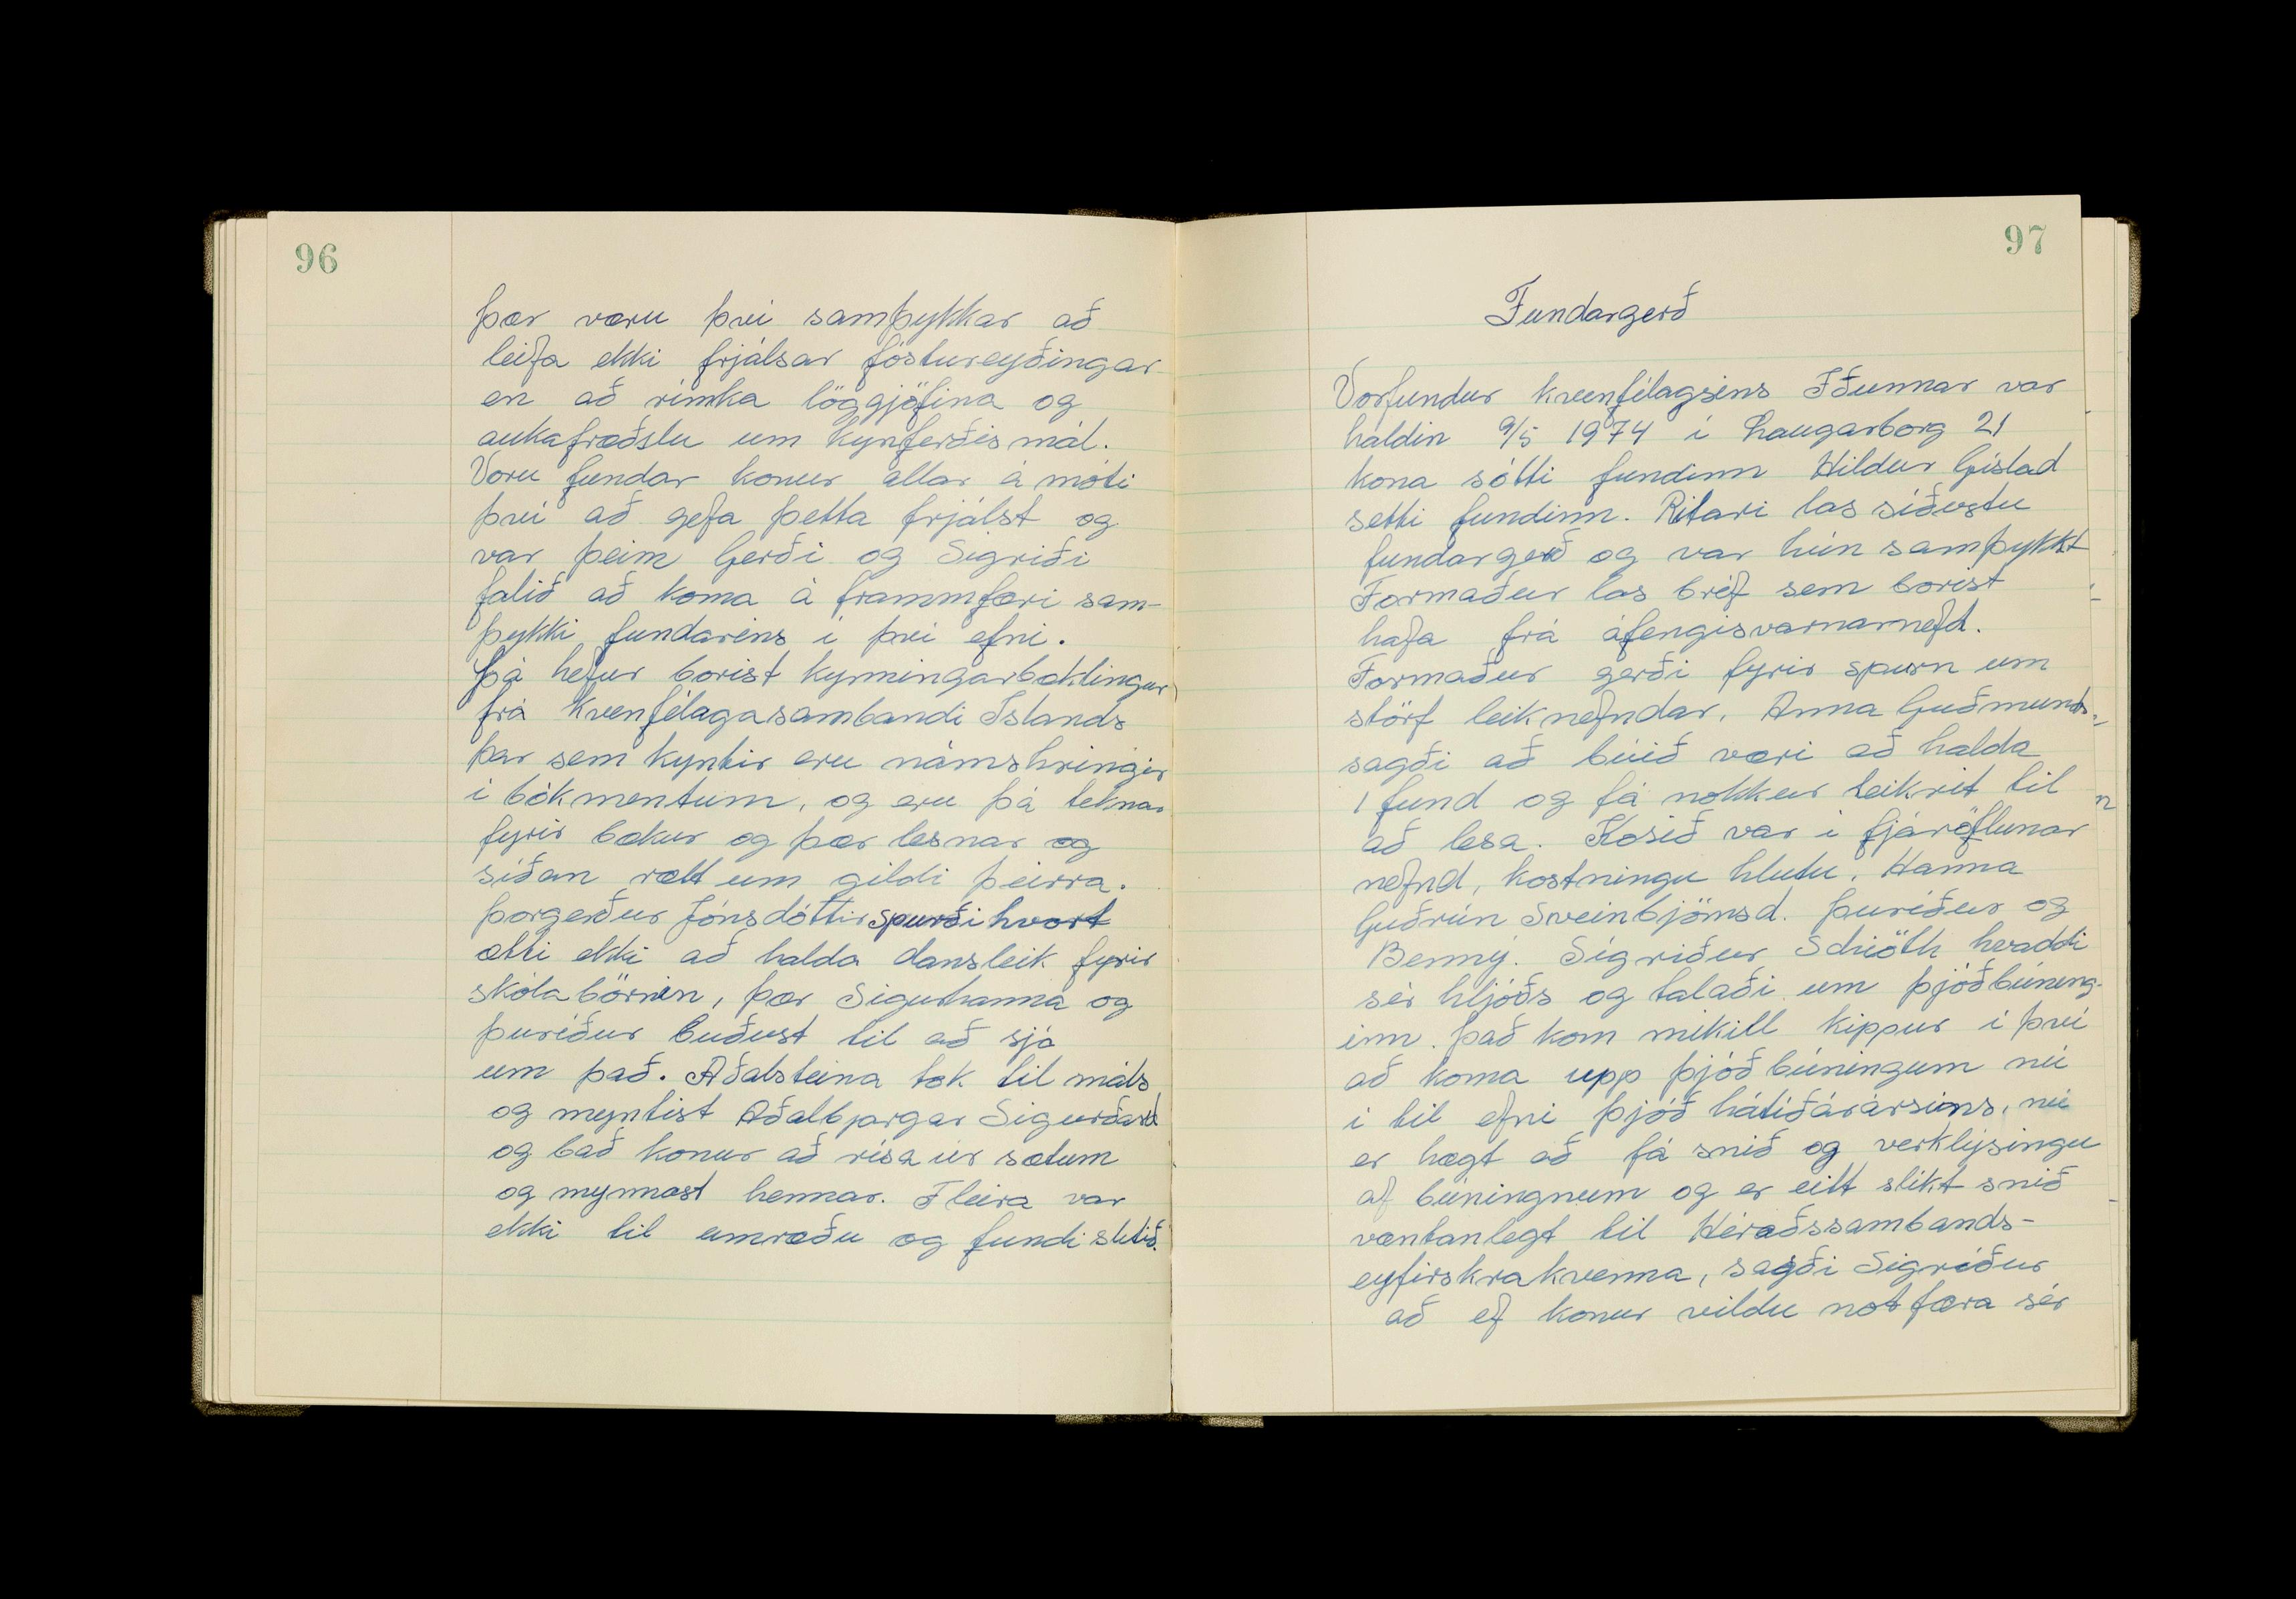 96
þær væru því samþykkar að
leifa ekki frjálsar fóstureyðingar
en að rímka löggjöfina og
auka fræðslu um kynferðis mál.
Voru fundar konur allar á móti
því að gefa þetta frjálst og
var þeim Gerði og Sigríði
falið að koma á frammfæri sam-
þykki fundarins í því efni.
Þá hefur borist kynningarbæklingur
frá Kvenfélagasambandi Íslands
þar sem kyntir eru námshringir
í bókmentum, og eru þá teknar
fyrir bækur og þær lesnar og
síðan rætt um gildi þeirra.
Þorgerður Jónsdóttir spurði hvort
ætti ekki að halda dansleik fyrir
skóla börnin, þær Sigurhanna og
Þuríður buðust til að sjá
um það. Aðalsteina tók til máls
og myntist Aðalbjargar Sigurðard
og bað konur að rísa úr sætum
og mynnast hennar. Fleira var
ekki til umræðu og fundi slitið.
97
Fundargerð
Vorfundur kvenfélagsins Iðunnar var
haldin 9/5 1974 í Laugarborg 21
kona sótti fundinn Hildur Gíslad
setti fundinn. Ritari las síðustu
fundargerð og var hún samþykkt
Formaður las bréf sem borist
hafa frá áfengisvarnarnefd.
Formaður gerði fyrir spurn um
störf leiknefndar. Anna Guðmunds.
sagði að búið væri að halda
1 fund og fá nokkur leikrit til
að lesa. Kosið var í fjáröflunar
nefnd, kostningu hlutu. Hanna
Guðrún Sveinbjörnsd. Þuríður og
Benný. Sigríður Schiöth kvaddi
sér hljóðs og talaði um þjóðbúning-
inn. Það kom mikill kippur í því
að koma upp þjóð búningum nú
í til efni þjóð hátíðárársins, nú
er hægt að fá snið og verklýsingu
af búningnum og er eitt slíkt snið
væntanlegt til Héraðssambands-
eyfirskra kvenna, sagði Sigríður
að ef konur vildu not færa sér